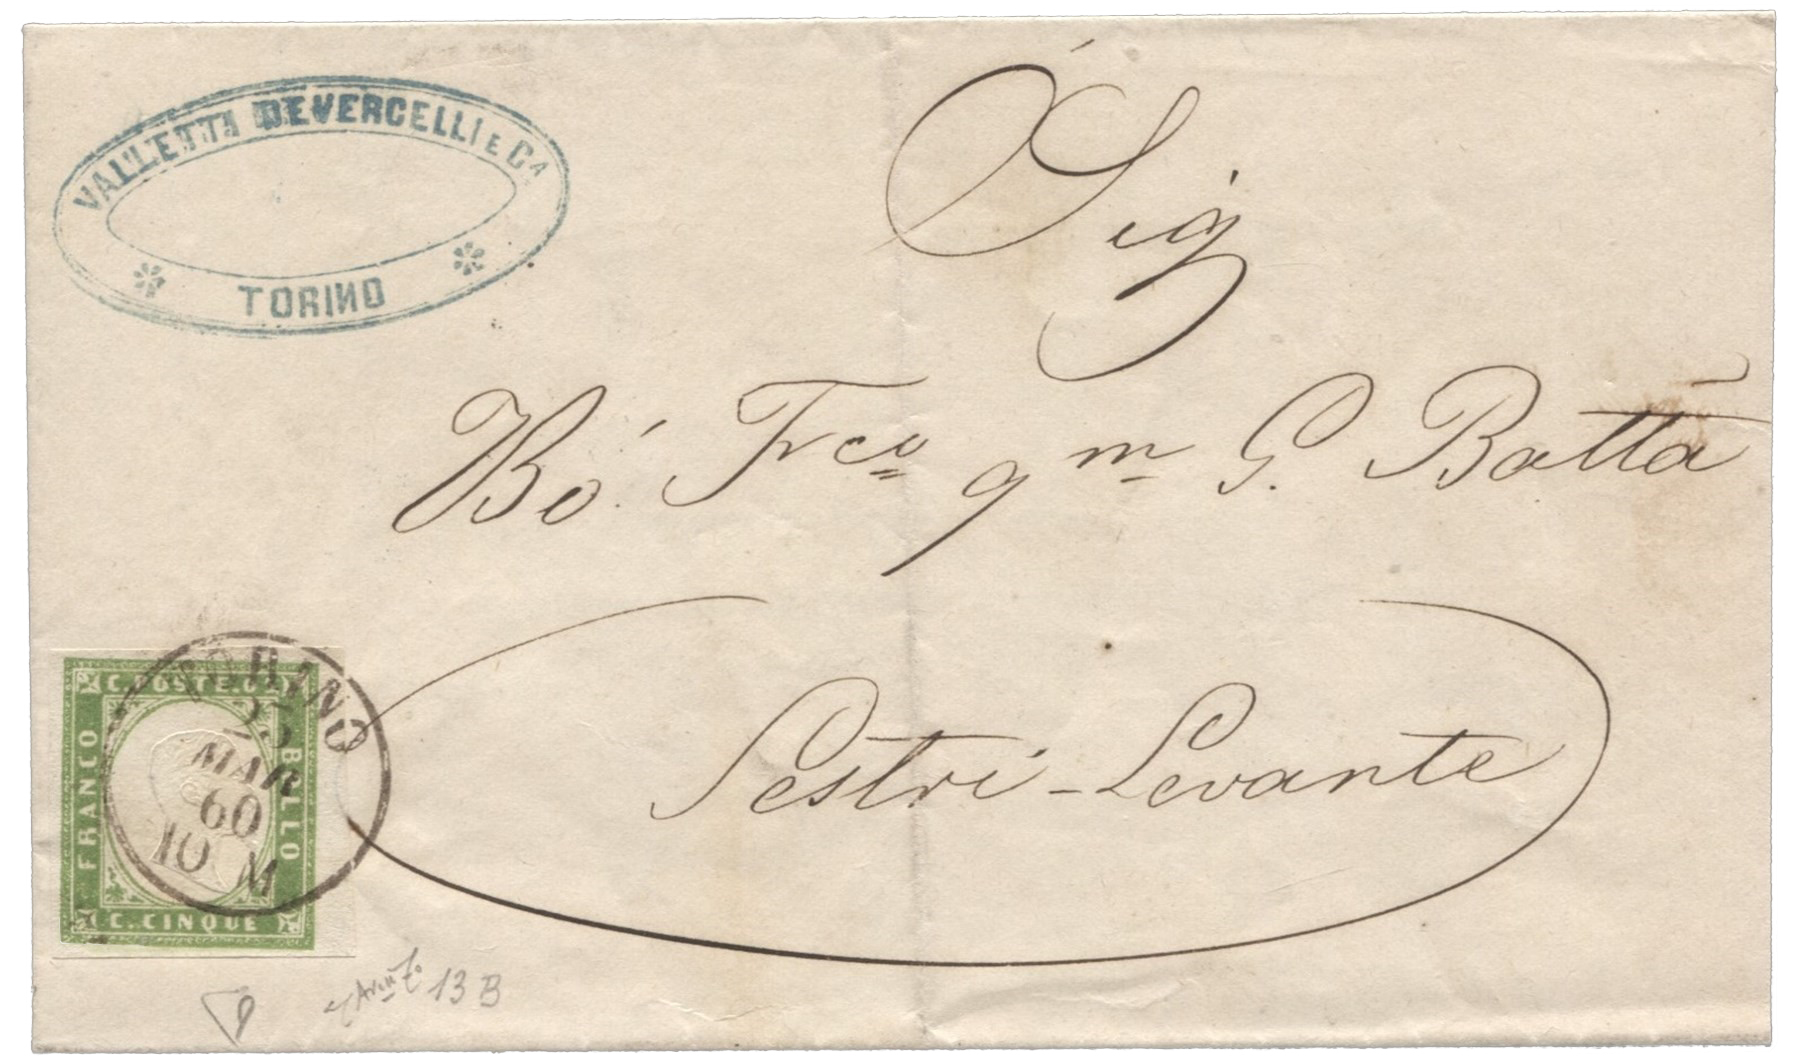 VALLETTI DEVERCELLI E Ca
TORINO
Sig
Bo. Frco qm G. Batta
Sestri-Levante
C. POSTE.
FRANCO
BOLLO
C. CINQUE
TORINO
25
MAR
60
10 M
13 B